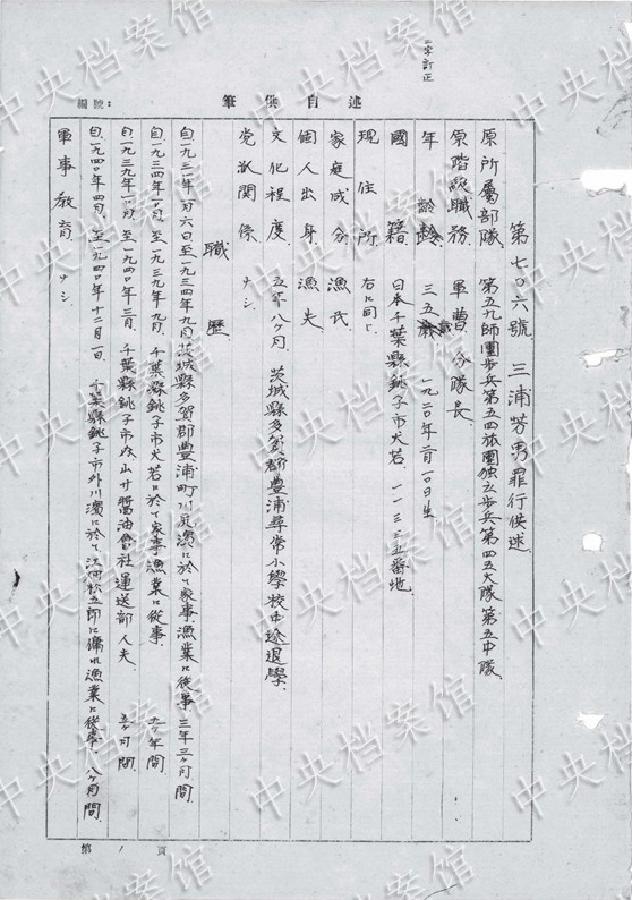 一字訂正
述自供筆
編號：
第七〇六號 三浦芳男罪行供述.
原所屬部隊 第五九師團步兵第五四旅團独立步兵第四五大隊第五中隊.
原階級職務 軍曹 分隊長.
年齢 三五歲 一九二〇年 月一〇日生
國籍 日本千葉縣銚子市犬若. 一一三三五番地
現住所 右に同じ
家庭成分 漁民
個人出身 漁夫
文化程度 五年八ヶ月. 茨城縣多賀郡豊浦尋常小學校中途退學.
党派関係 ナシ.
職歷
自.一九三一年 月六日.至一九三四年 月.茨城縣多賀郡豊浦町川尻濱に於て家事.漁業に從事 三年三ヶ月間.
自.一九三四年 月.至一九三九年 月. 千葉縣銚子市犬若に於て家事漁業に從事. ヶ年間
自.一九三九年 月.至一九四〇年三月. 千葉縣銚子市 山サ醬油會社運送部人夫 ヶ月間.
自.一九四〇年四月.至一九四〇年十二月一日. 千葉縣銚子市外川濱に於て 五郎に雇れ漁業に從事. 八ヶ月間
軍事教育 ナシ
第 1 頁
中央档案馆